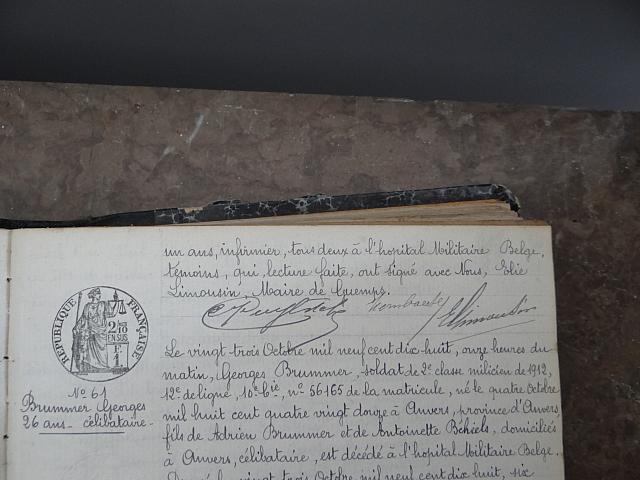 un ans, infirmier, tous deux à l'hopital Militaire Belge,
témoins, qui, lecture faite, ont signé avec Nous, Elie
Limousin, Maire de Guemps.
ELimousin
RÉPUBLIQUE FRANÇAISE
2/10
EN SUS
Le vingt trois Octobre mil neuf cent dix-huit, onze heures du
matin, Georges Brummer, soldat de 2e classe milicien de 1912,
12e de ligne, 10e Cie, no 56165 de la matricule, né le quatre Octobre
mil huit cent quatre vingt douze à Anvers, province d'Anvers,
fils de Adrien Brummer et de Antoinette Béhiels, domiciliés
à Anvers, célibataire, est décédé à l'hopital Militaire Belge.
vingt trois Octobre mil neuf cent dix huit, six
No 61
Brummer Georges
26 ans - célibataire -